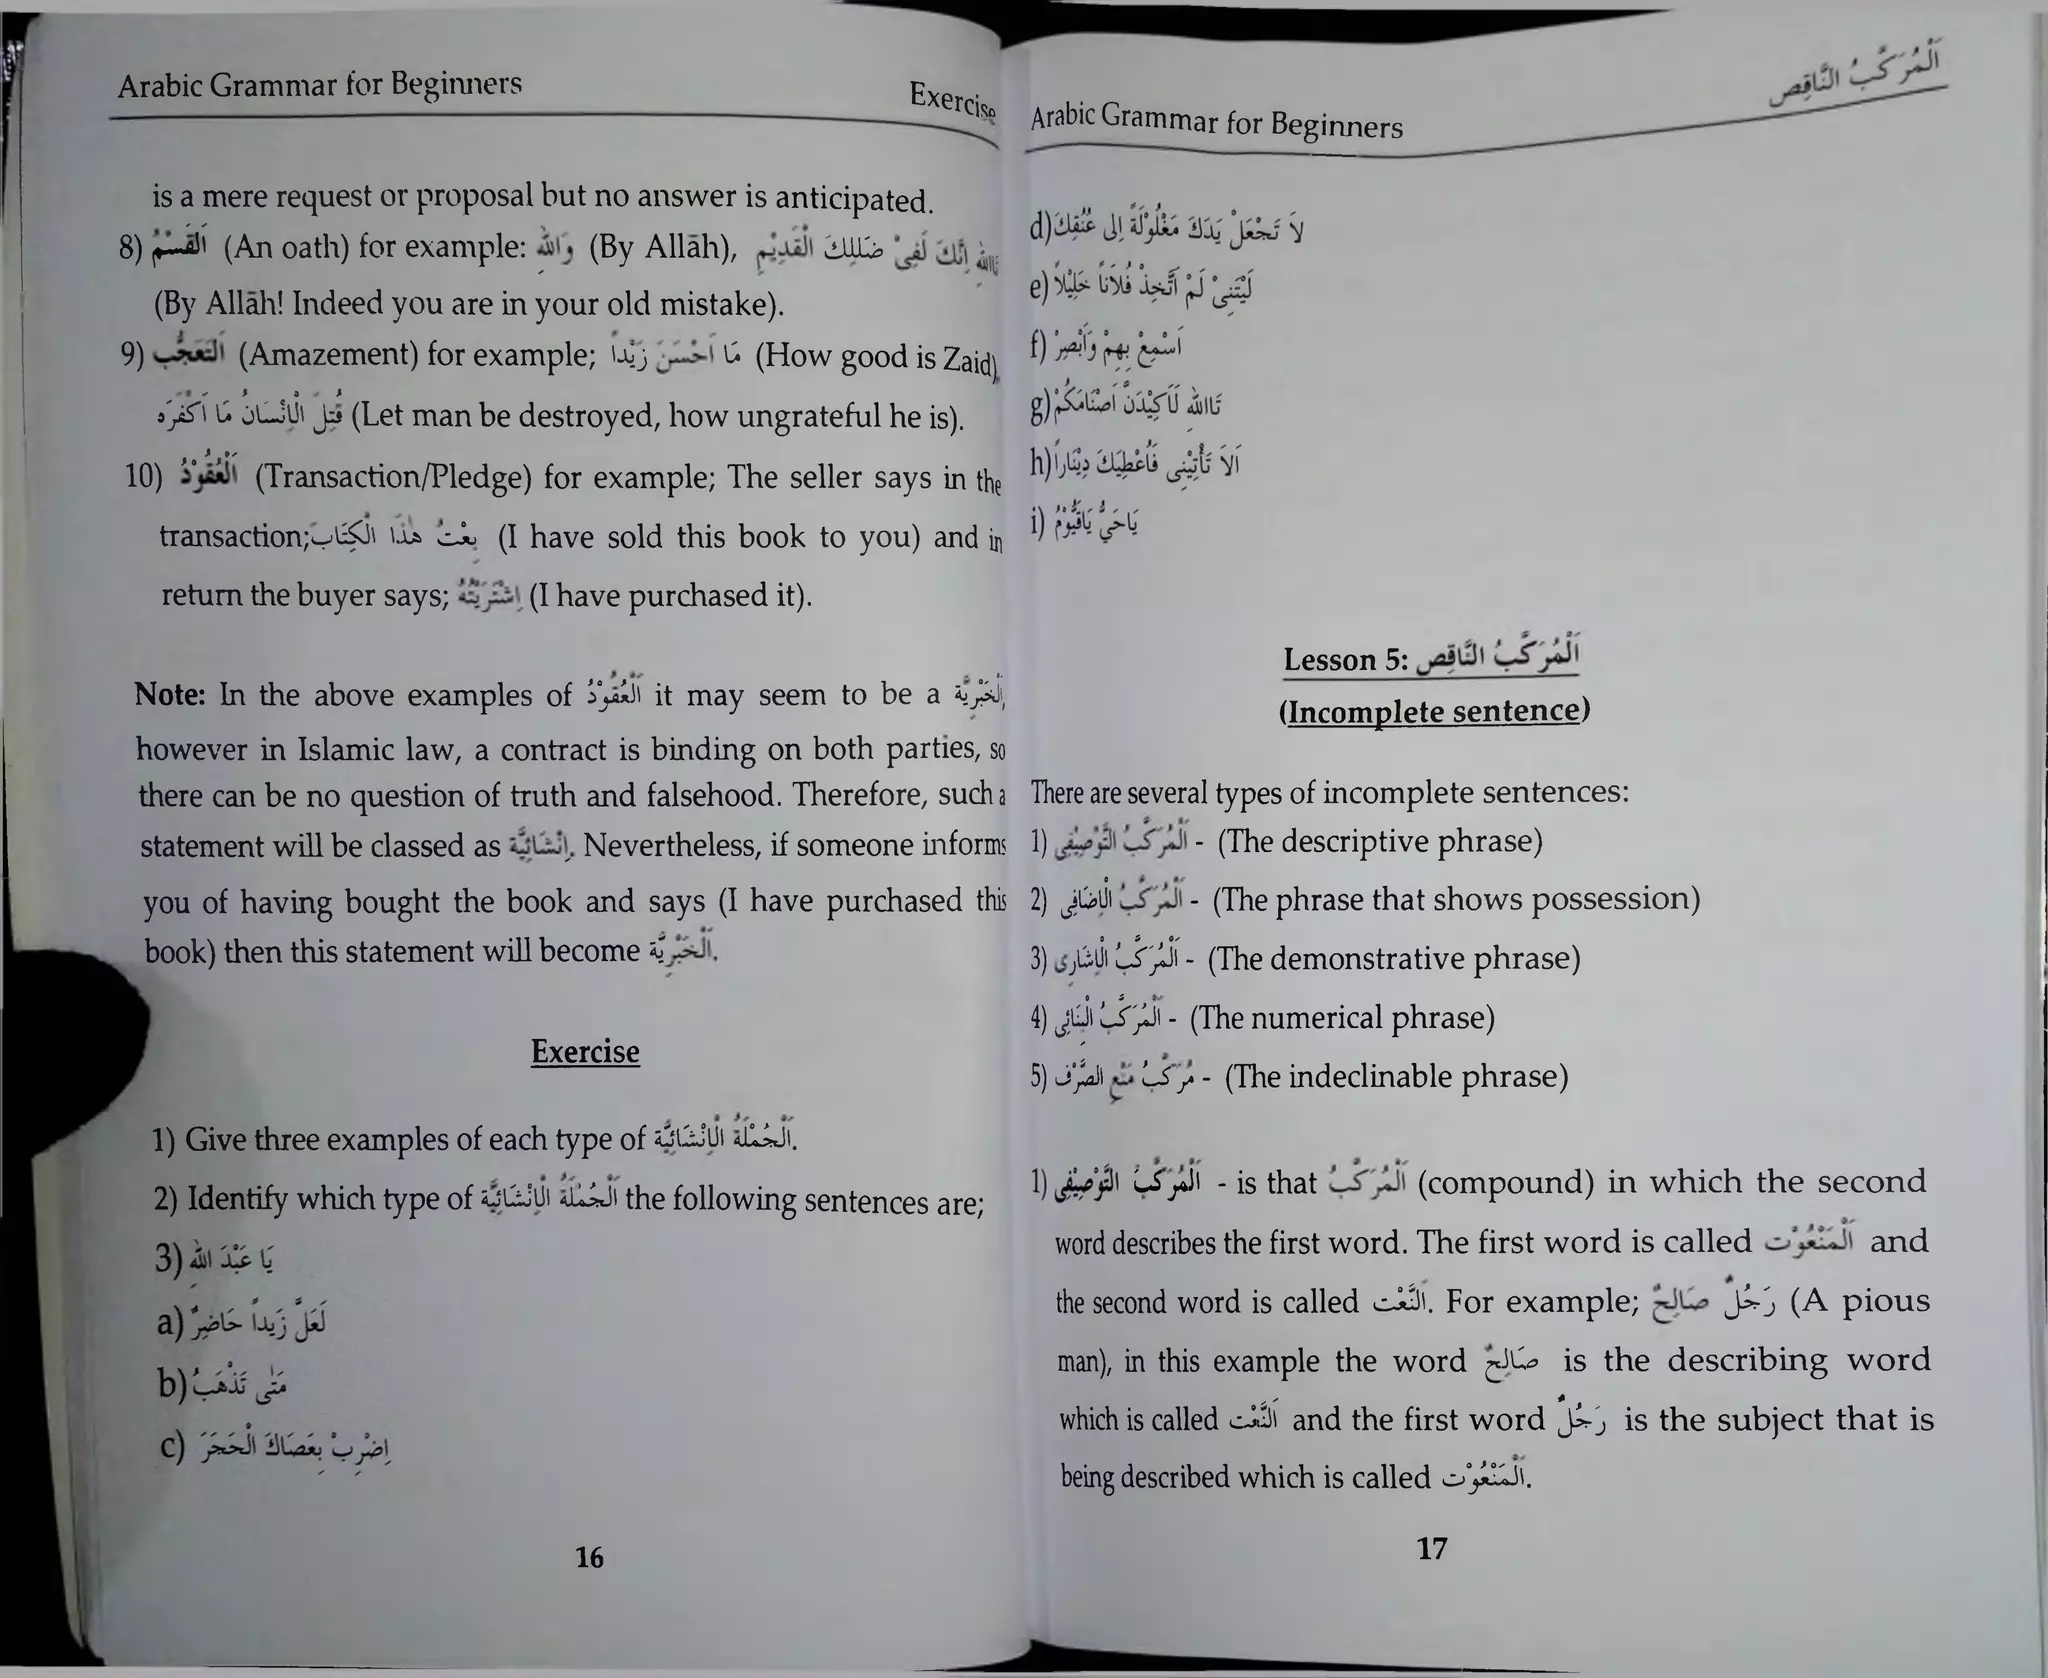 Arabic Grammar for Beginners
Exercise
is a mere request or proposal but no answer is anticipated.
8) اَلْقَسَمُ (An oath) for example: وَاللهِ (By Allāh), تَاللهِ اِنَّكَ لَفِىْ ضَلٰلِكَ الْقَدِيْمِ
(By Allāh! Indeed you are in your old mistake).
9) اَلتَّعَجُّب (Amazement) for example; مَا اَحْسَنَ زَيْداً (How good is Zaid)
قُتِلَ الْاِنْسَانُ مَا اَكْفَرَه (Let man be destroyed, how ungrateful he is).
10) اَلْعُقُوْدُ (Transaction/Pledge) for example; The seller says in the
transaction; بِعْتُ هٰذَا الْكِتَابَ (I have sold this book to you) and in
return the buyer says; اِشْتَرَيْتُهُ (I have purchased it).
Note: In the above examples of اَلْعُقُوْدُ it may seem to be a اَلْخَبْرِيَّة,
however in Islamic law, a contract is binding on both parties, so
there can be no question of truth and falsehood. Therefore, such a
statement will be classed as اِنْشَائِيَّة. Nevertheless, if someone informs
you of having bought the book and says (I have purchased this
book) then this statement will become اَلْخَبْرِيَّة.
Exercise
1) Give three examples of each type of اَلْجُمْلَةُ الْاِنْشَائِيَّة.
2) Identify which type of اَلْجُمْلَةُ الْاِنْشَائِيَّة the following sentences are;
3) يَا عَبْدَ اللهِ
a) لَعَلَّ زَيداً حَاضِرٌ
b) مَتٰى تَذْهَبُ
c) اِضْرِبْ بِعَصَاكَ الْحَجَرَ
16
Arabic Grammar for Beginners
اَلْمُرَكَّبُ النَّاقِص
d) لاَ تَجْعَلْ يَدَكَ مَغْلُوْلَةً اِلٰى عُنُقِكَ
e) لَيْتَنِىْ لَمْ اَتَّخِذْ فُلاَناً خَلِيْلاً
f) اَسْمِعْ بِهِمْ وَاَبْصِرْ
g) تَااللهِ لَاَكِيْدَنَّ اَصْنَامَكُمْ
h) اَلاَ تَأْتِيْنِىْ فَاُعْطِيَكَ دِيْنَاراً
i) يَاحَيُّ يَاقَيُّوْمُ
Lesson 5: اَلْمُرَكَّبُ النَّاقِص
(Incomplete sentence)
There are several types of incomplete sentences:
1) اَلْمُرَكَّبُ التَّوْصِيْفِى - (The descriptive phrase)
2) اَلْمُرَكَّبُ الْاِضَافِى - (The phrase that shows possession)
3) اَلْمُرَكَّبُ الْاِشَارِى - (The demonstrative phrase)
4) اَلْمُرَكَّبُ الْبِنَائِى - (The numerical phrase)
5) مُرَكَّبُ مَنْعِ الصَّرْف - (The indeclinable phrase)
1) اَلْمُرَكَّبُ التَّوْصِيْفِى - is that اَلْمُرَكَّبُ (compound) in which the second
word describes the first word. The first word is called اَلْمَنْعُوْت and
the second word is called اَلنَّعْت. For example; رَجُلٌ صَالِحٌ (A pious
man), in this example the word صَالِحٌ is the describing word
which is called اَلنَّعْت and the first word رَجُلٌ is the subject that is
being described which is called اَلْمَنْعُوْت.
17